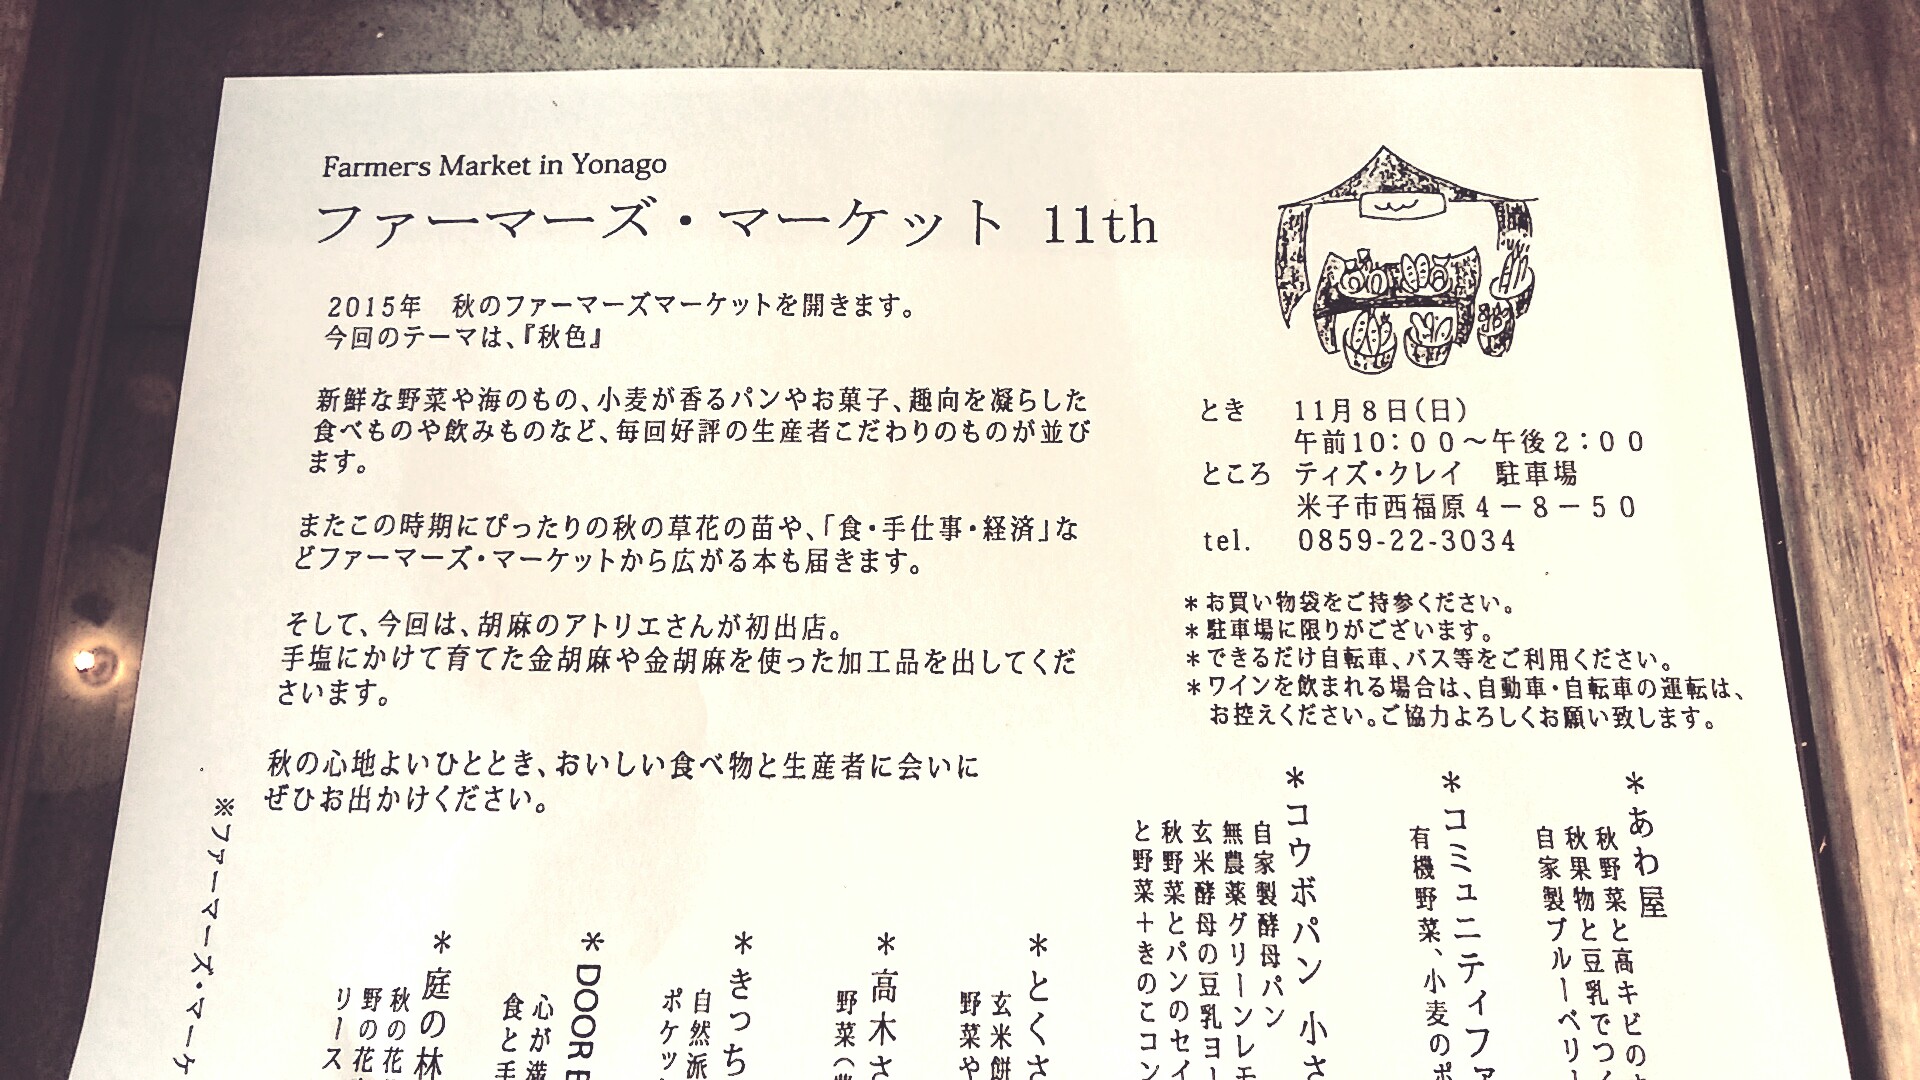 Farmer's Market in Yonago
ファーマーズ・マーケット 11th
2015年　秋のファーマーズマーケットを開きます。
今回のテーマは、『秋色』
新鮮な野菜や海のもの、小麦が香るパンやお菓子、趣向を凝らした
食べものや飲みものなど、毎回好評の生産者こだわりのものが並び
ます。
またこの時期にぴったりの秋の草花の苗や、「食・手仕事・経済」な
どファーマーズ・マーケットから広がる本も届きます。
そして、今回は、胡麻のアトリエさんが初出店。
手塩にかけて育てた金胡麻や金胡麻を使った加工品を出してくだ
さいます。
秋の心地よいひととき、おいしい食べ物と生産者に会いに
ぜひお出かけください。
とき　11月8日(日)
午前10:00～午後2:00
ところ　ティズ・クレイ　駐車場
米子市西福原4－8－50
tel.　0859-22-3034
＊お買い物袋をご持参ください。
＊駐車場に限りがございます。
＊できるだけ自転車、バス等をご利用ください。
＊ワインを飲まれる場合は、自動車・自転車の運転は、
お控えください。ご協力よろしくお願い致します。
＊あわ屋
秋野菜と高キビの
秋果物と豆乳でつく
自家製ブルーベリー
＊コミュニティファ
有機野菜、小麦のポ
＊コウボパン 小さ
自家製酵母パン
無農薬グリーンレモ
玄米酵母の豆乳ヨー
秋野菜とパンのセイ
と野菜＋きのこコン
＊とくさ
玄米餅
野菜や
＊高木さ
野菜(
＊きっち
自然派
ポケッ
＊DOOR
心が満
食と手
＊庭の林
秋の花
野の花
リース
※ファーマーズ・マーケ